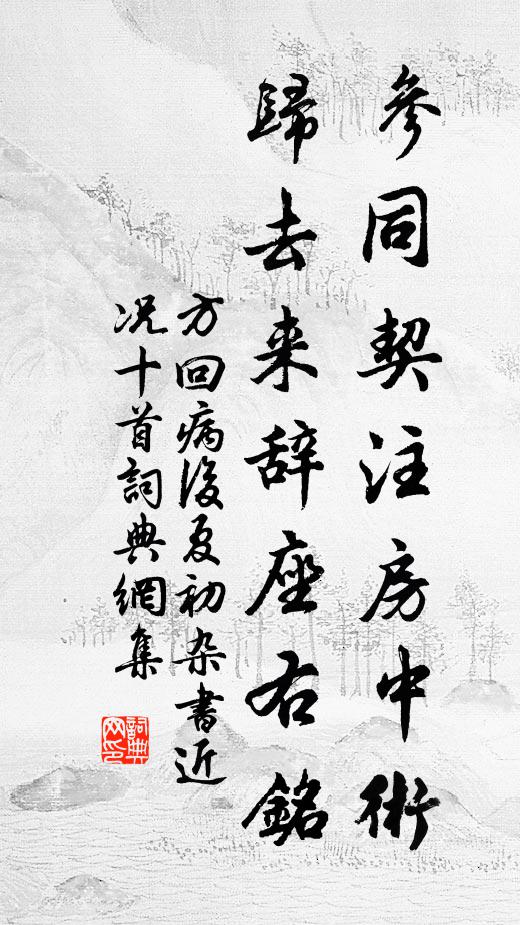 參同契注房中術
歸去来辞座右銘
方回病後夏初杂書近
况十首詞典網集
詞典
网印